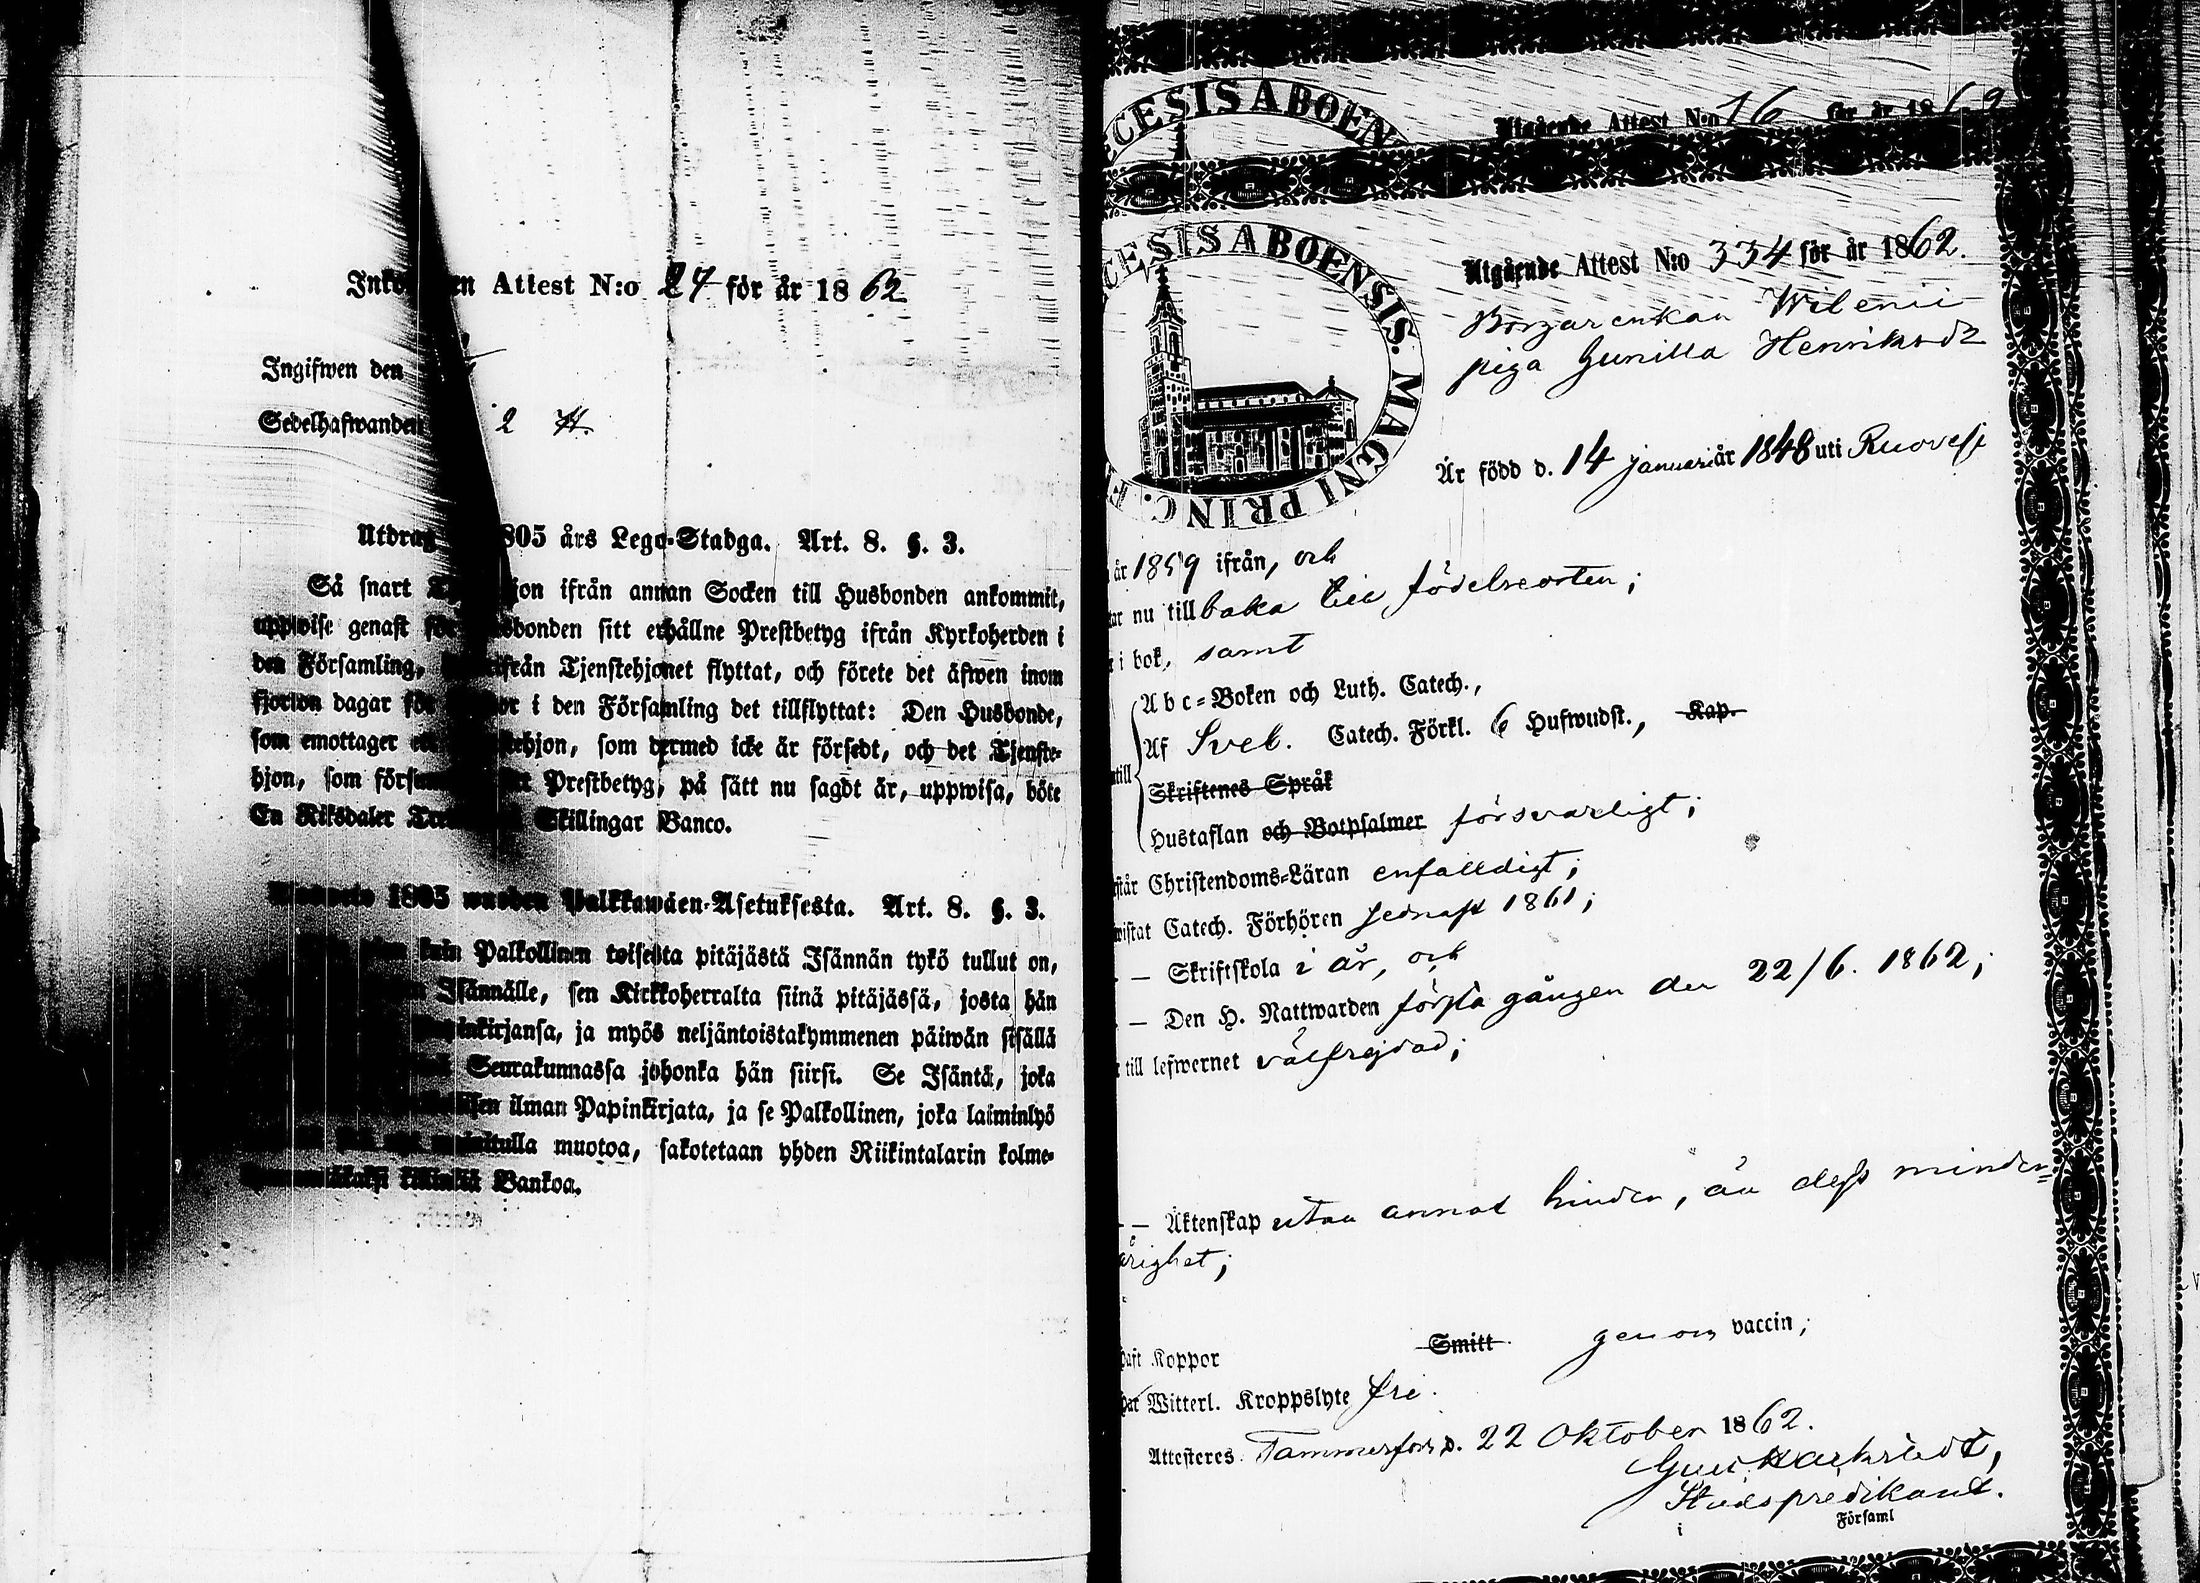 Attest N:o 24 för år 1862
Ingifwen den
Sedelhafwanden 2
1805 års Lego-Stadga. Art. 8. §. 3.
Så snart ifrån annan Socken till Husbonden ankommit,
uppwise genast sitt erhållne Prestbetyg ifrån Kyrkoherden i
den Församling, Tjenstehjonet flyttat, och förete det äfwen inom
fjorton dagar i den Församling det tillflyttat: Den Husbonde,
som emottager som dermed icke är försedt, och det Tjenste-
hjon, som Prestbetyg, på sätt nu sagdt är, uppwisa, böte
En Riksdaler Skillingar Banco.
1805 wuoden Palkkawäen-Asetuksesta. Art. 8. §. 3.
kuin Palkollinen toisesta pitäjästä Isännän tykö tullut on,
Isännälle, sen Kirkkoherralta siinä pitäjässä, josta hän
ja myös neljäntoistakymmenen päiwän sisällä
Seurakunnassa johonka hän siirsi. Se Isäntä, joka
ilman Papinkirjata, ja se Palkollinen, joka laiminlyö
muotoa, sakotetaan yhden Riikintalarin kolme-
Bankoa.
CESIS ABOEN
Utgående Attest N:o 16 för år 186
CESIS ABOENSIS. MAGNI PRINC. F
Utgående Attest N:o 334 för år 1862.
piga Gunilla Henriksdr
Är född d. 14 januari år 1848 uti Ruovesi
år 1859 ifrån, och
nu tillbaka till födelseorten;
i bok, samt
till
Abc-Boken och Luth. Catech.,
Af Sveb. Catech. Förkl. 6 Hufwudst., Kap.
Skriftenes Språk
Hustaflan och Botpsalmer försvarligt;
Christendoms-Läran enfalldigt;
Catech. Förhören sednast 1861;
— Skriftskola i år, och
— Den H. Nattwarden första gången den 22/6. 1862;
till lefwernet välfrejdad;
— Äktenskap utan annat hinder, än dess minder=
årighet;
haft Koppor Smitt genom vaccin;
Witterl. Kroppslyte fri.
Attesteres. Tammerfors d. 22 Oktober 1862.
Stadspredikant.
i Församl